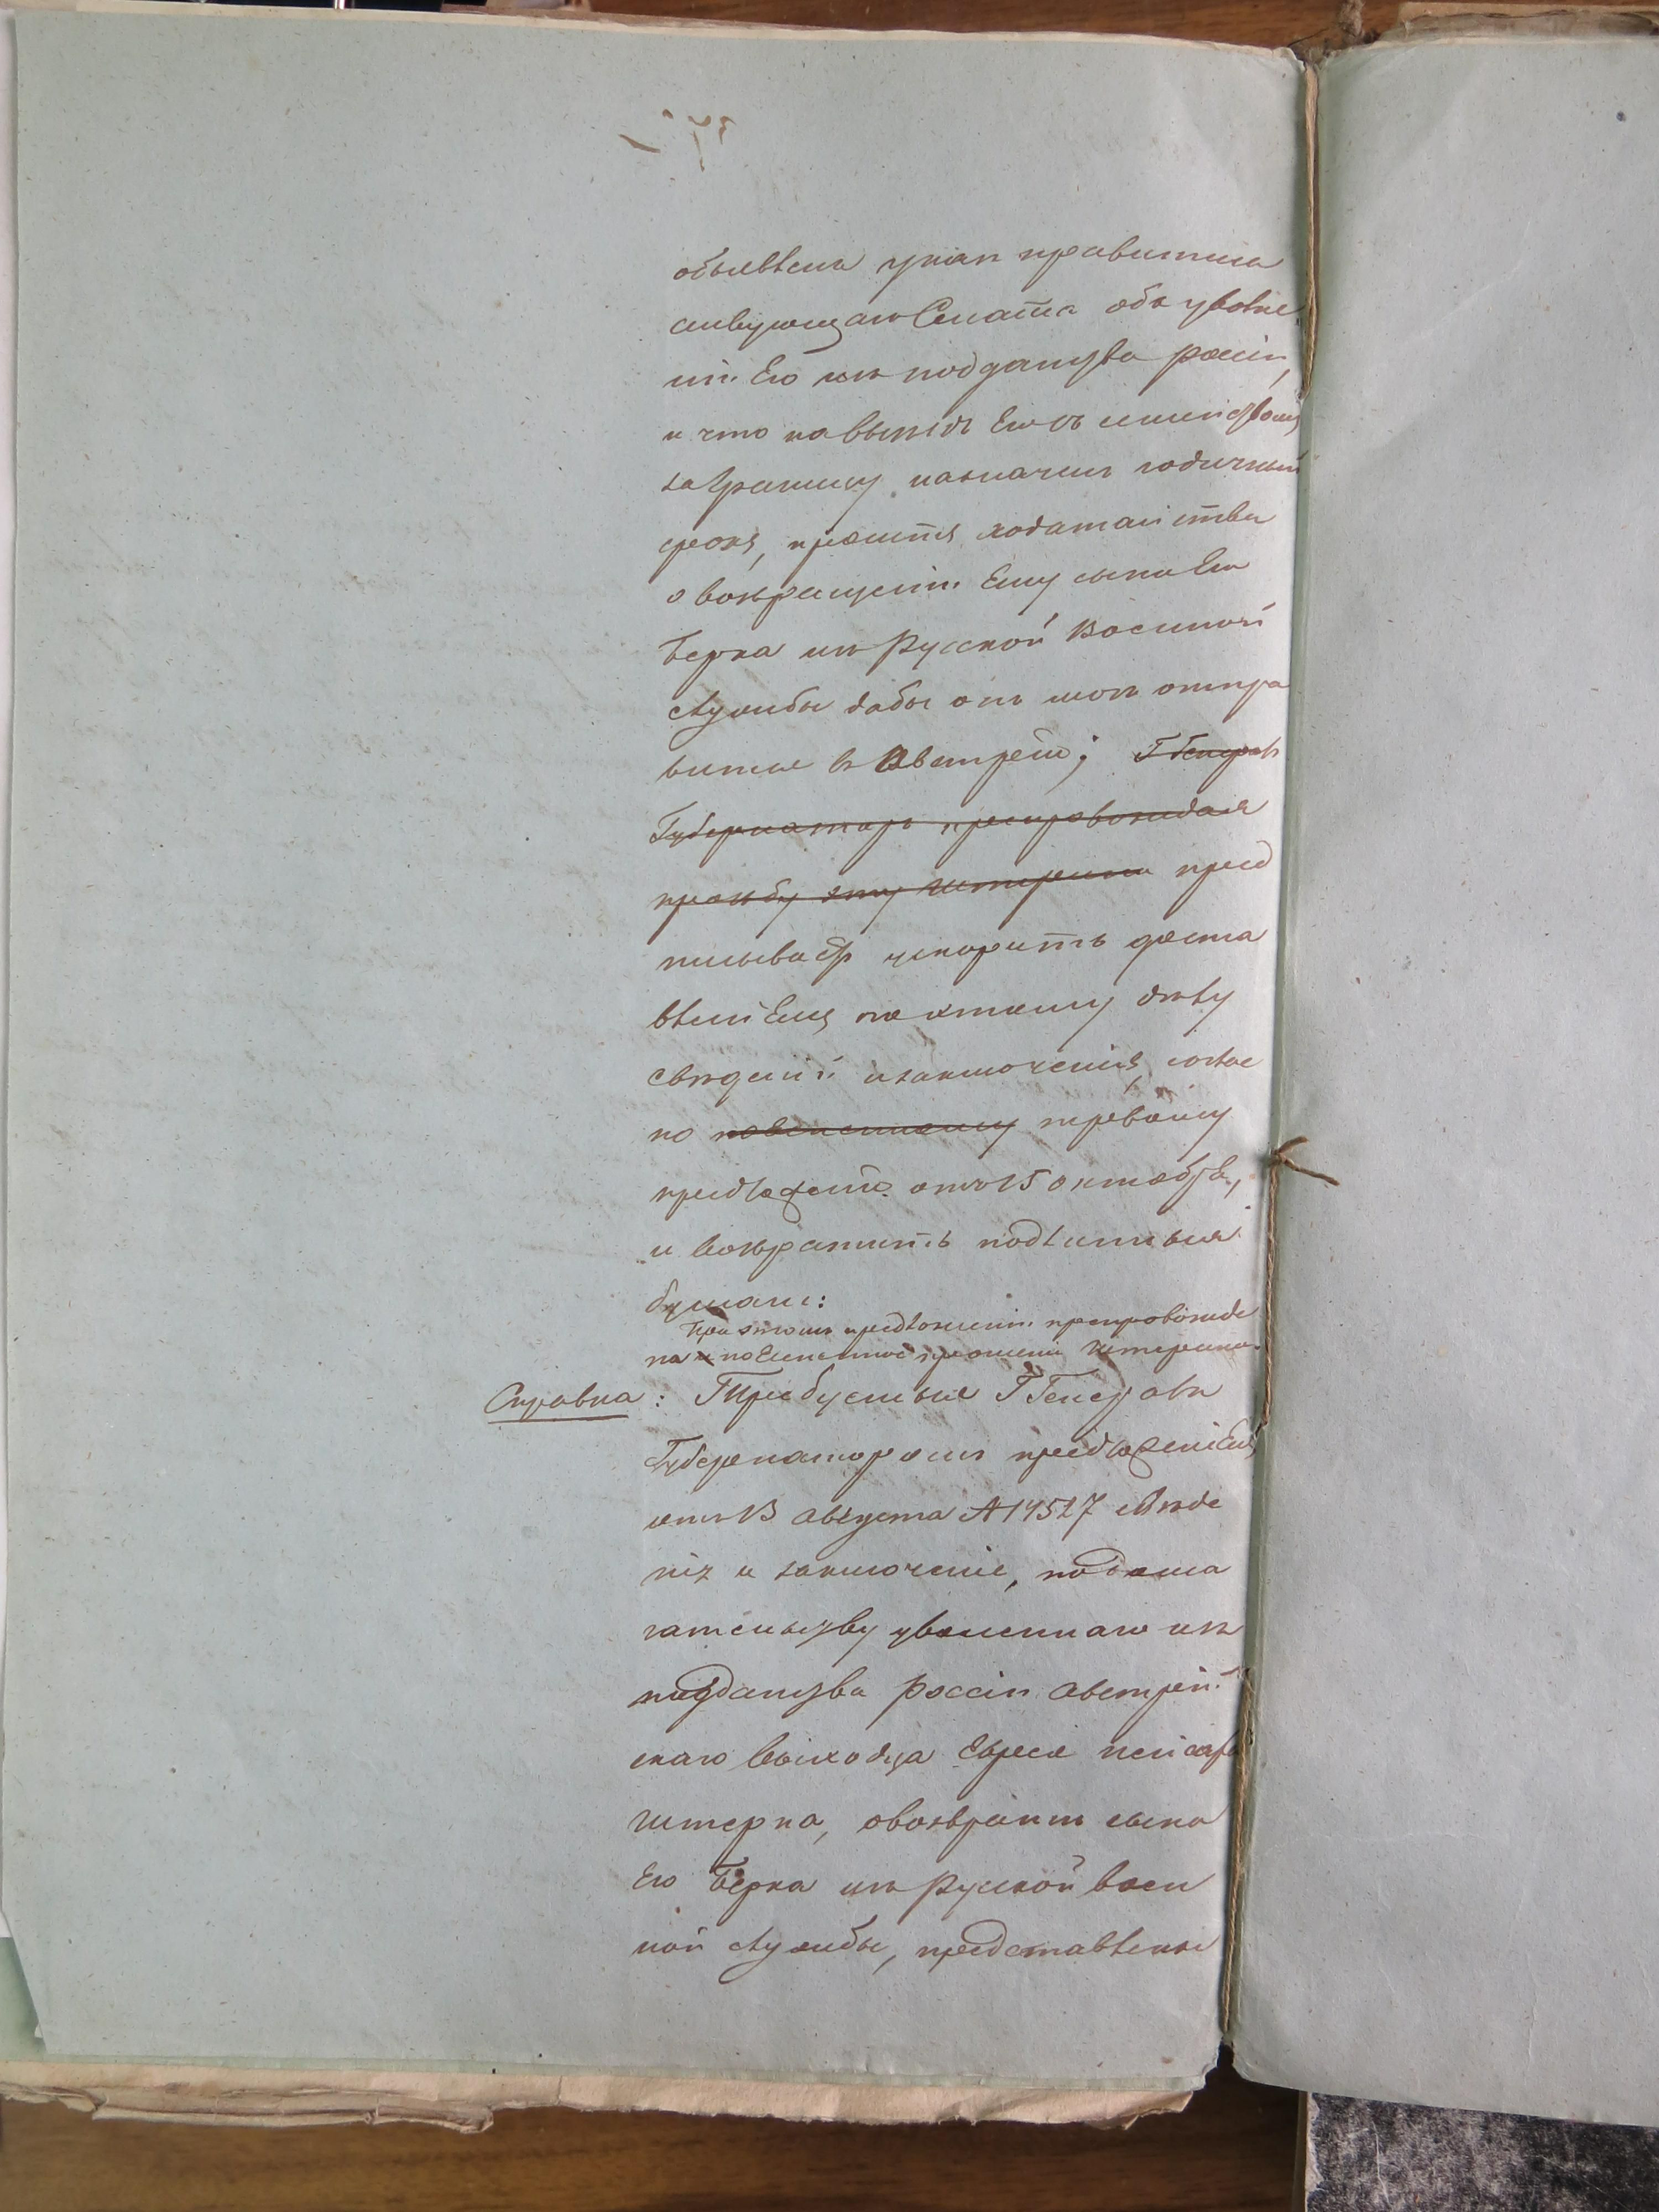 объявленъ указъ правитель
ствующаго Сената объ увольне
ніи Его изъ подданства россіи,
и что на выѣздъ Его съ семействомъ
заграницу назначенъ годичный
срокъ, проситъ ходатайства
о возвращеніи Ему сына Его
Берка изъ Русской Военной
службы дабы онъ могъ отпра
виться въ Австрію; Г Генералъ
Губернаторъ препровождая
прозьбу эту Штерна пред
писываетъ ускорить доста
вленіемъ по этому дѣлу
свѣденій и заключенія, соглас
но первому
предложенію отъ 15 октября,
и возвратить подлинныя
бумаги:
При этомъ предложеніи препровожде
на и поименная прошенія Штерна.
Справка: Требуемыя Г Генералъ
Губернаторомъ предложеніемъ
отъ 13 Августа № 14527 свѣде
нія и заключеніе, по дома
гательству уволеннаго изъ
подданства россіи Австрій
скаго выходца Еврея
Штерна, о возвратѣ сына
Его Берка изъ Руской воен
ной службы, представлены